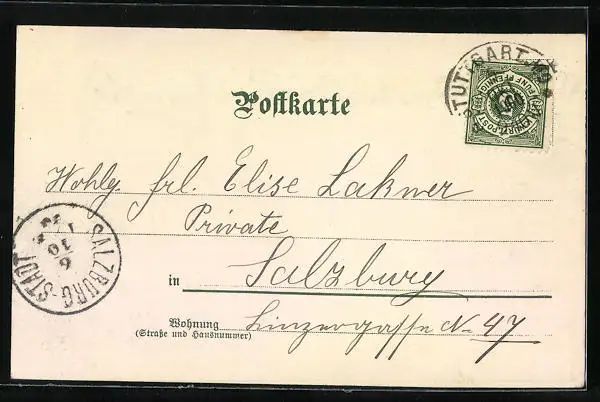 STUTTGART
K. WÜRTT. POST
FÜNF PFENNIG
Postkarte
Wohlg. Frl. Elise Lakner
Private
in Salzburg
Wohnung Linzergasse N. 47
(Straße und Hausnummer)
SALZBURG-STADT